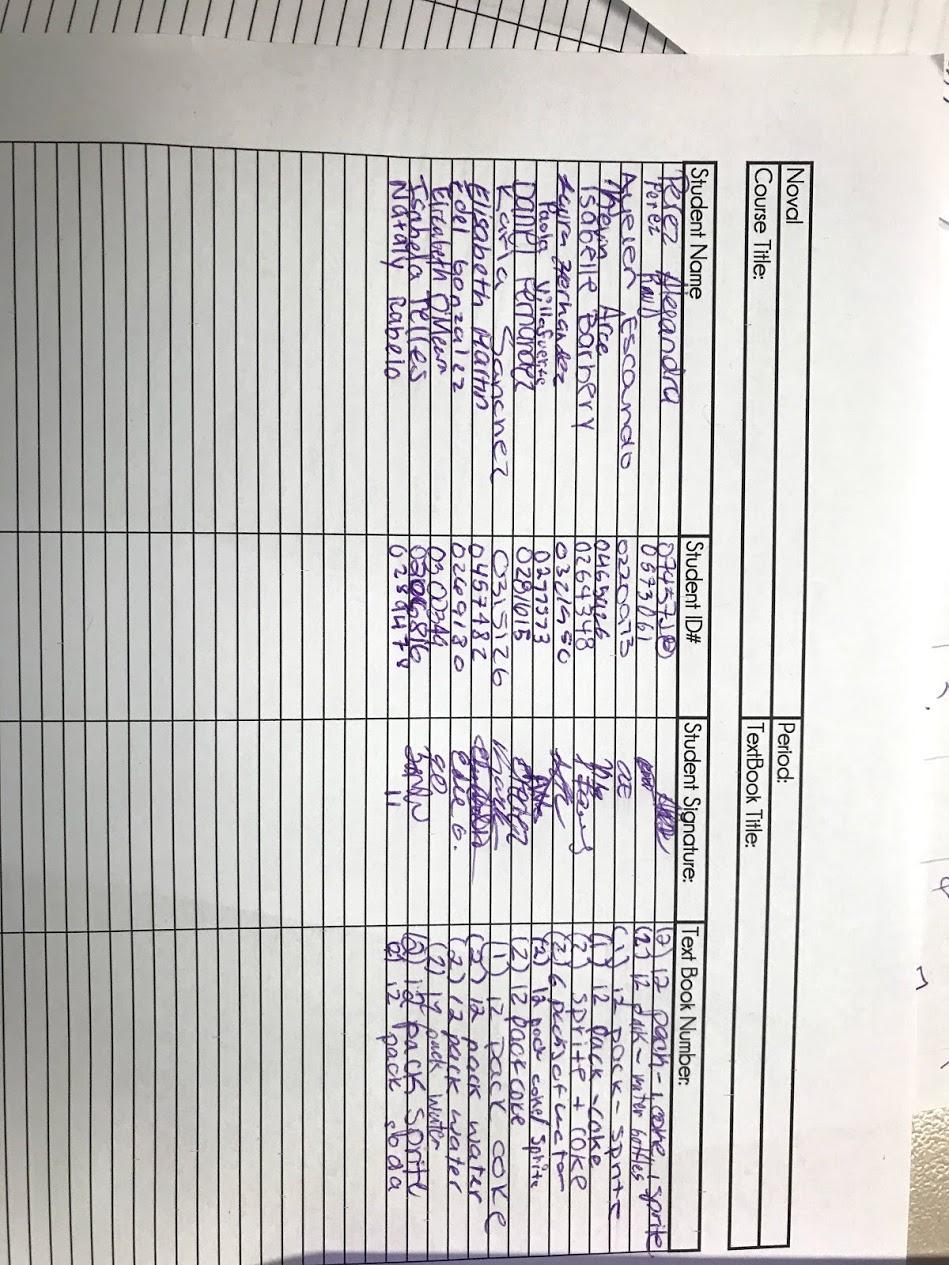 Noval
Period:
Course Title:
TextBook Title:
Student Name Student ID# Student Signature: Text Book Number:
Perez Alegandra (2) 12 pack - 1 coke, 1 sprite
Perez Raul 0573761 (2) 12 pak - water bottles
Ayelen Escando 0220073 aE (1) 12 pack - sprite
Arce (1) 12 pack - coke
Isabelle Barbery 0264348 (2) sprite + coke
Hernandez (2) 6 packs of water
Paola Villafuerte 0277573 (2) 12 pack coke/ sprite
Daniel Fernandez 0281615 (2) 12 pack coke
Karla Sanchez 0315126 (1) 12 pack coke
Elisabeth Martin 0457482 (2) 12 pack water
Edel Gonzalez 0269180 Edel G. (2) 12 pack water
Elizabeth (2) 12 pack water
Isabela Telles (2) 12 pack sprite
Nataly Rabelo 0289478 12 pack soda